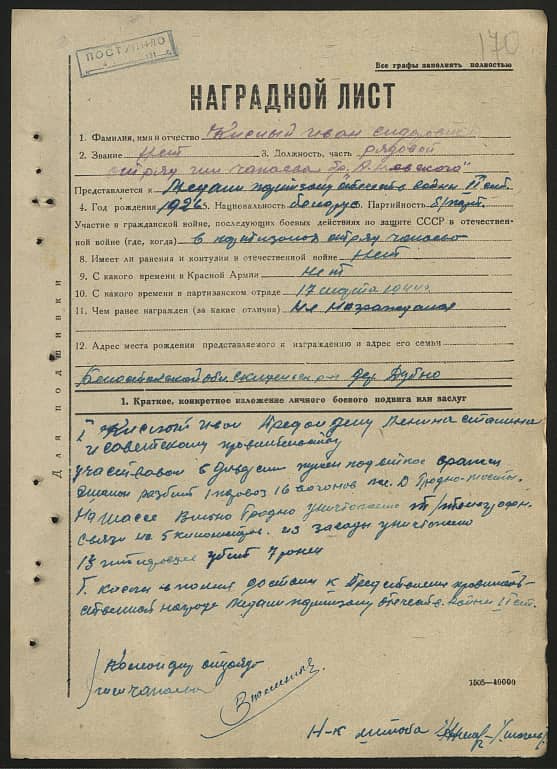 170
ПОСТУПИЛО
Все графы заполнять полностью
НАГРАДНОЙ ЛИСТ
1. Фамилия, имя и отчество Кислый Иван
2. Звание Нет 3. Должность, часть рядовой
отряд им Чапаева бр. А. Невского"
Представляется к Медали партизану отечеств войны II ст.
4. Год рождения 1926 5. Национальность беларус 6. Партийность б/парт.
Участие в гражданской войне, последующих боевых действиях по защите СССР и отечествен-
ной войне (где, когда) в партизанск отряд Чапаева
8. Имеет ли ранения и контузии в отечественной войне Нет
9. С какого времени в Красной Армии Нет
10. С какого времени в партизанском отряде 17 марта 1944
11. Чем ранее награжден (за какие отличия) Не награждался
12. Адрес места рождения представляемого к награждению и адрес его семьи
Белостокской обл. Скидельск р-н дер. Дубно
Для подшивки
1. Краткое, конкретное изложение личного боевого подвига или заслуг
Т. Кислый Иван Предан делу Ленина Сталина
и советскому правительству
участвовал в
разбит 1 паровоз 16 вагонов ж. д Гродно-Мосты.
На шоссе Вильно Гродно уничтожено т/телеграфн.
связи на 5 километров. из засады уничтожено
убит 7 ранен
Т. Кислый достоин к Представлению правитель-
ственной награде Медали партизану отечеств. войны II ст.
Командир отряда
им Чапаева
Н-к штаба
1505—40000